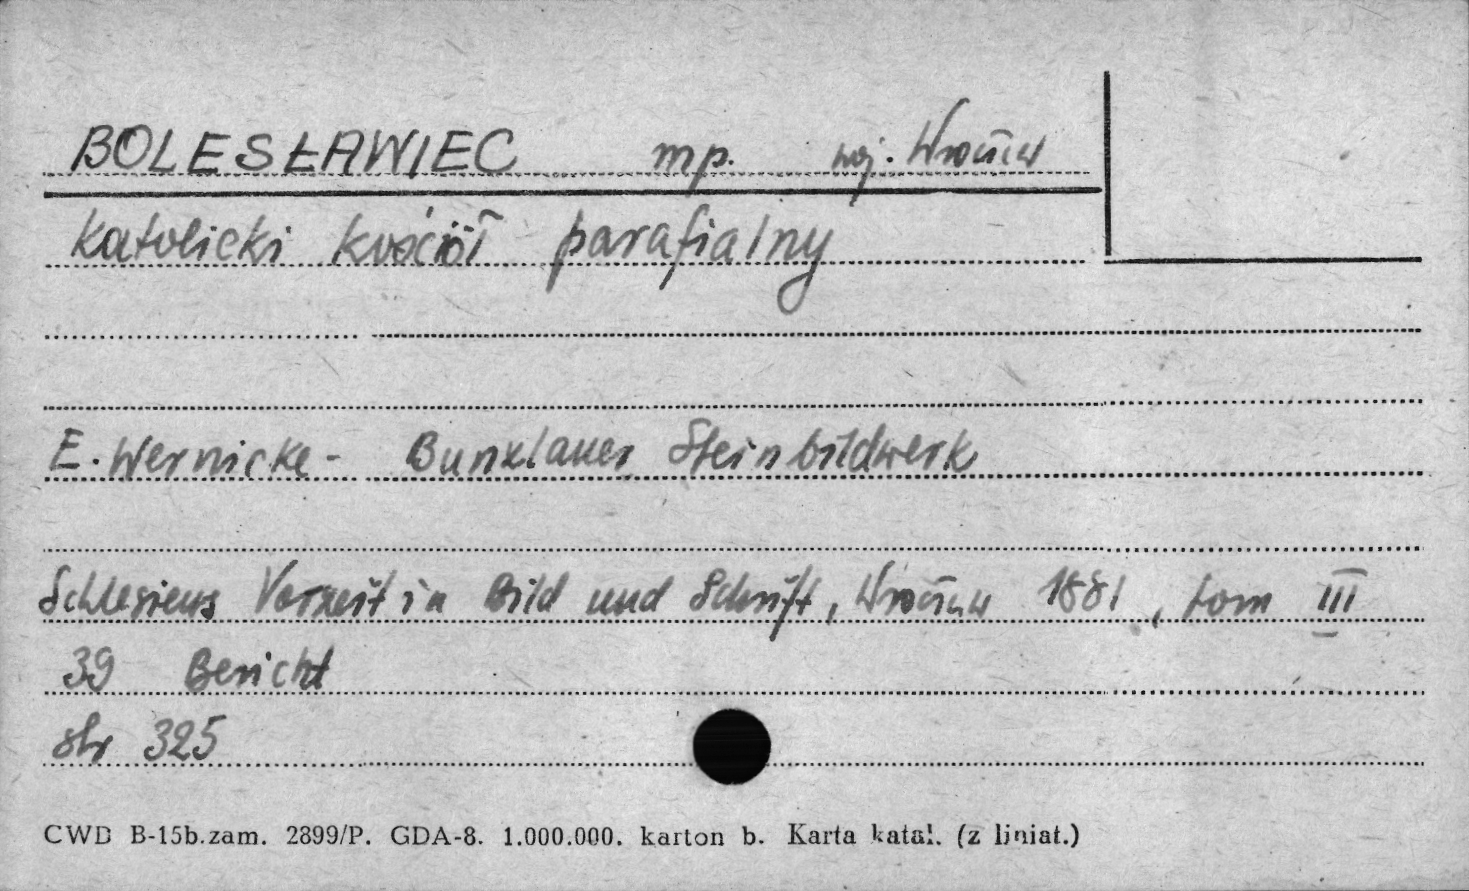 BOLESŁAWIEC mp. woj. Wrocław
katolicki kościół parafialny
E. Wernicke - Bunzlauer Steinbildwerk
Schlesiens Vorzeit in Bild und Schrift, Wrocław 1881, tom III
39 Bericht
str 325
CWD B-15b.zam. 2899/P. GDA-8. 1.000.000. karton b. Karta katal. (z liniat.)